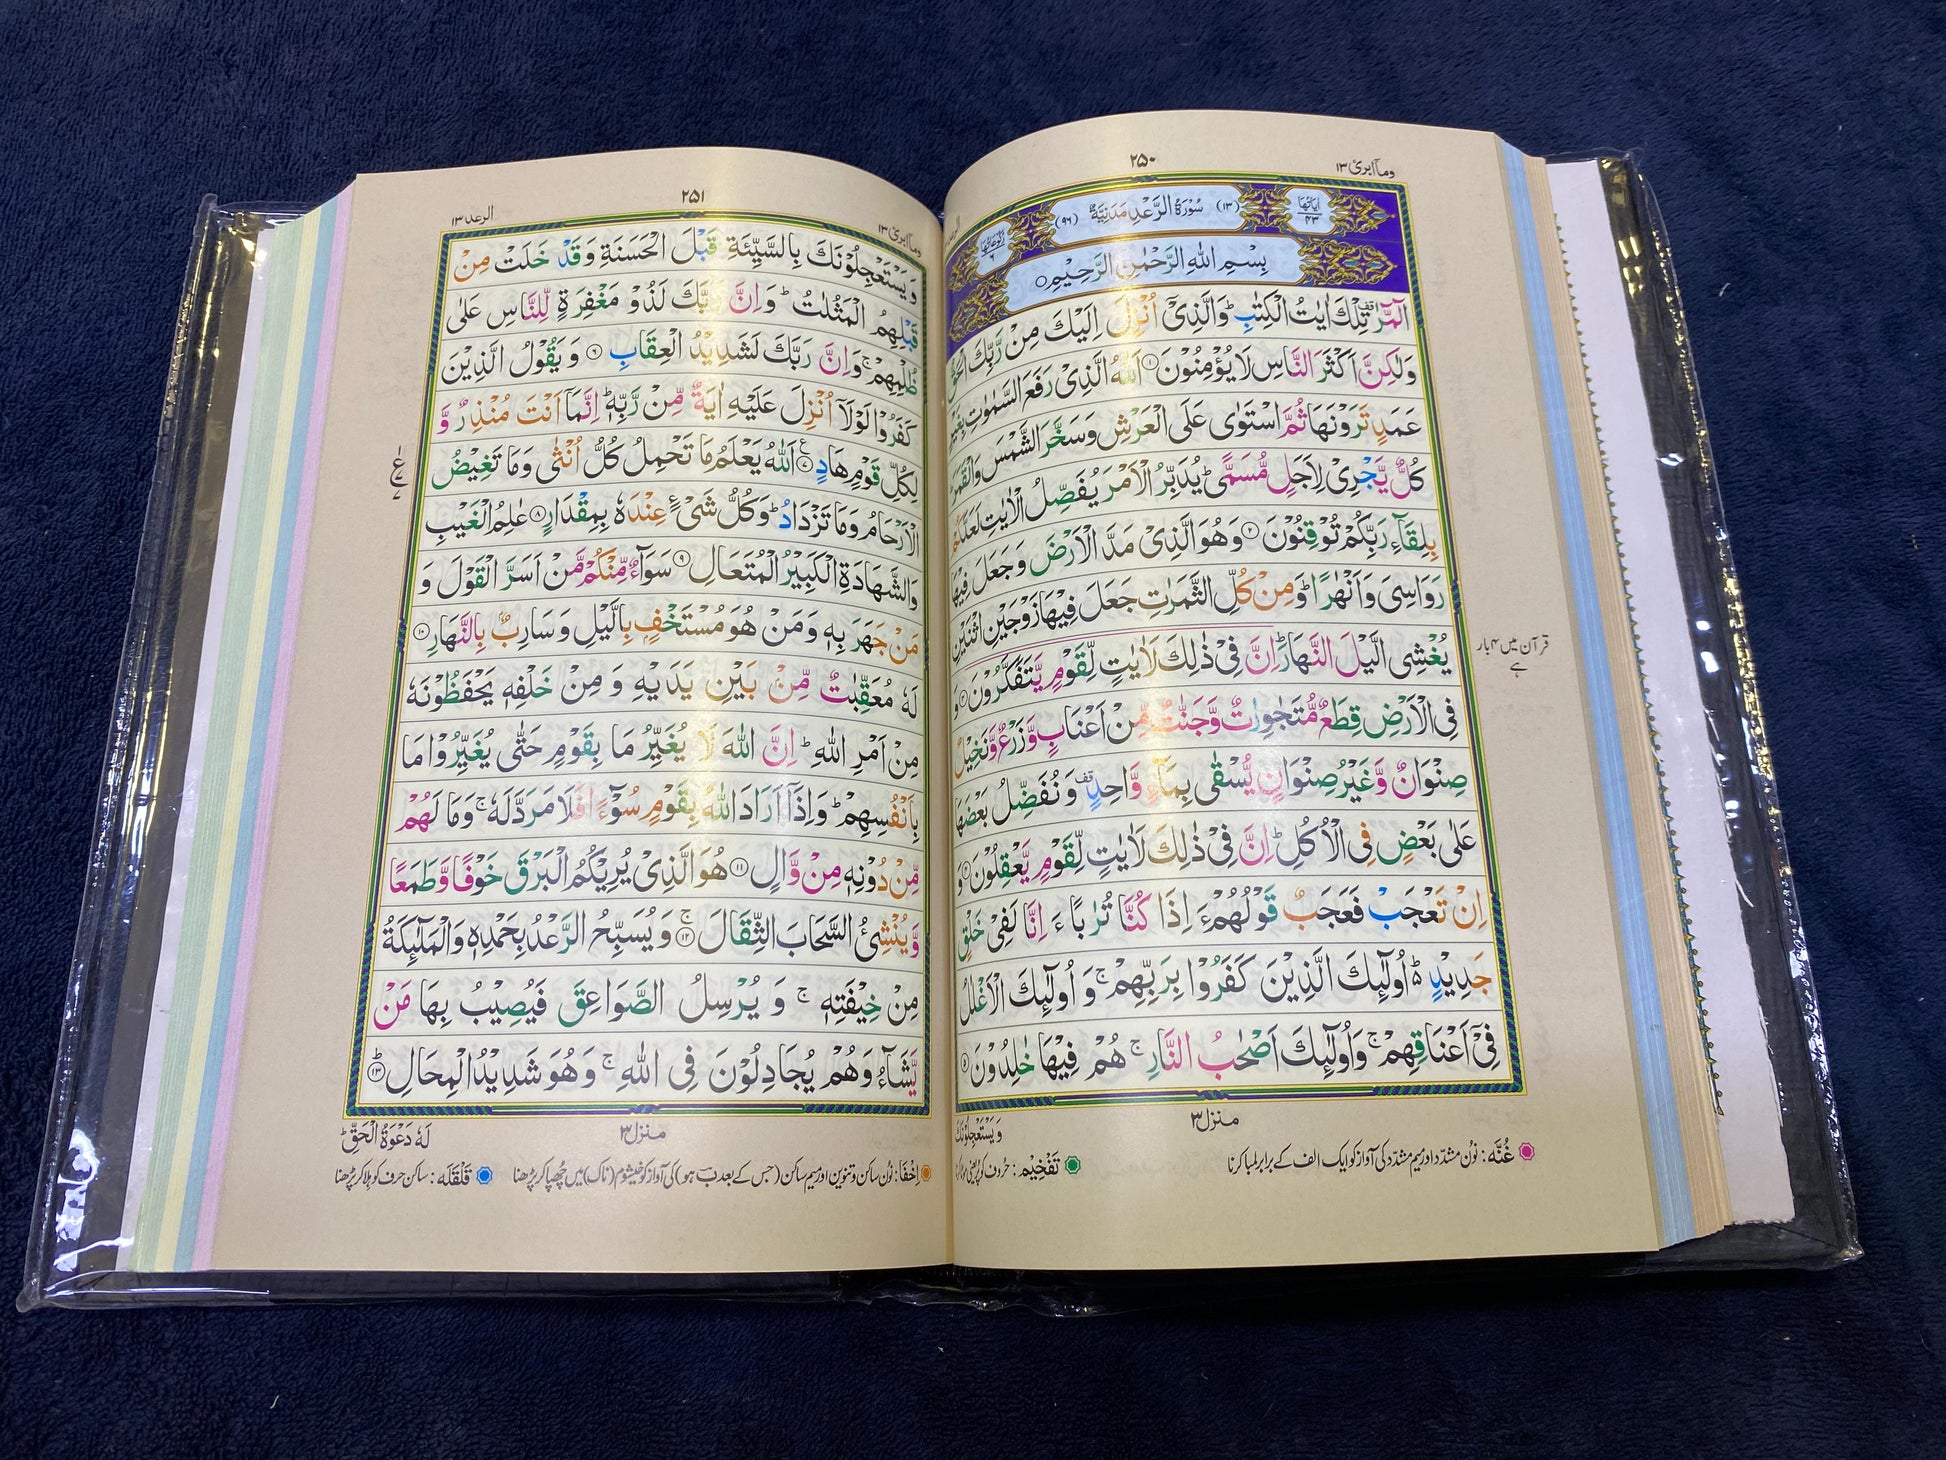 وماۤ ابرئ ١٣
٢٥٠
اٰیَاتُهَا ٤٣
(١٣) سُوْرَةُ الرَّعْدِ مَدَنِیَّةٌ (٩٦)
رُكُوْعَاتُهَا ٦
بِسْمِ اللّٰهِ الرَّحْمٰنِ الرَّحِیْمِ
الٓمّٓرٰ ۫ تِلْكَ اٰیٰتُ الْكِتٰبِ ؕ وَالَّذِیْۤ اُنْزِلَ اِلَیْكَ مِنْ رَّبِّكَ الْحَقُّ
وَلٰكِنَّ اَكْثَرَ النَّاسِ لَا یُؤْمِنُوْنَ ۝١ اَللّٰهُ الَّذِیْ رَفَعَ السَّمٰوٰتِ بِغَیْرِ
عَمَدٍ تَرَوْنَهَا ثُمَّ اسْتَوٰى عَلَى الْعَرْشِ وَسَخَّرَ الشَّمْسَ وَالْقَمَرَ ؕ
كُلٌّ یَّجْرِیْ لِاَجَلٍ مُّسَمًّى ؕ یُدَبِّرُ الْاَمْرَ یُفَصِّلُ الْاٰیٰتِ لَعَلَّكُمْ
بِلِقَآءِ رَبِّكُمْ تُوْقِنُوْنَ ۝٢ وَهُوَ الَّذِیْ مَدَّ الْاَرْضَ وَجَعَلَ فِیْهَا
رَوَاسِیَ وَاَنْهٰرًا ؕ وَمِنْ كُلِّ الثَّمَرٰتِ جَعَلَ فِیْهَا زَوْجَیْنِ اثْنَیْنِ
یُغْشِی الَّیْلَ النَّهَارَ ؕ اِنَّ فِیْ ذٰلِكَ لَاٰیٰتٍ لِّقَوْمٍ یَّتَفَكَّرُوْنَ ۝٣ وَ
فِی الْاَرْضِ قِطَعٌ مُّتَجٰوِرٰتٌ وَّجَنّٰتٌ مِّنْ اَعْنَابٍ وَّزَرْعٌ وَّنَخِیْلٌ
صِنْوَانٌ وَّغَیْرُ صِنْوَانٍ یُّسْقٰى بِمَآءٍ وَّاحِدٍ ۫ وَنُفَضِّلُ بَعْضَهَا
عَلٰى بَعْضٍ فِی الْاُكُلِ ؕ اِنَّ فِیْ ذٰلِكَ لَاٰیٰتٍ لِّقَوْمٍ یَّعْقِلُوْنَ ۝٤ وَ
اِنْ تَعْجَبْ فَعَجَبٌ قَوْلُهُمْ ءَاِذَا كُنَّا تُرٰبًا ءَاِنَّا لَفِیْ خَلْقٍ
جَدِیْدٍ ؕ۬ اُولٰٓئِكَ الَّذِیْنَ كَفَرُوْا بِرَبِّهِمْ ۚ وَاُولٰٓئِكَ الْاَغْلٰلُ
فِیْۤ اَعْنَاقِهِمْ ۚ وَاُولٰٓئِكَ اَصْحٰبُ النَّارِ ۚ هُمْ فِیْهَا خٰلِدُوْنَ ۝٥
قرآن میں ۴ بار
ہے
منزل ٣
وَیَسْتَعْجِلُوْنَكَ
غُنَّه: نُون مشدّد اور میم مشدّد کی آواز کو ایک الف کے برابر لمبا کرنا
تَفْخِیْم: حروف کو پُر یعنی موٹا کرنا
وماۤ ابرئ ١٣
٢٥١
الرعد ١٣
وَیَسْتَعْجِلُوْنَكَ بِالسَّیِّئَةِ قَبْلَ الْحَسَنَةِ وَقَدْ خَلَتْ مِنْ
قَبْلِهِمُ الْمَثُلٰتُ ؕ وَاِنَّ رَبَّكَ لَذُوْ مَغْفِرَةٍ لِّلنَّاسِ عَلٰى
ظُلْمِهِمْ ۚ وَاِنَّ رَبَّكَ لَشَدِیْدُ الْعِقَابِ ۝٦ وَیَقُوْلُ الَّذِیْنَ
كَفَرُوْا لَوْلَاۤ اُنْزِلَ عَلَیْهِ اٰیَةٌ مِّنْ رَّبِّهٖ ؕ اِنَّمَاۤ اَنْتَ مُنْذِرٌ وَّ
لِكُلِّ قَوْمٍ هَادٍ ۝٧ اَللّٰهُ یَعْلَمُ مَا تَحْمِلُ كُلُّ اُنْثٰى وَمَا تَغِیْضُ
الْاَرْحَامُ وَمَا تَزْدَادُ ؕ وَكُلُّ شَیْءٍ عِنْدَهٗ بِمِقْدَارٍ ۝٨ عٰلِمُ الْغَیْبِ
وَالشَّهَادَةِ الْكَبِیْرُ الْمُتَعَالِ ۝٩ سَوَآءٌ مِّنْكُمْ مَّنْ اَسَرَّ الْقَوْلَ وَ
مَنْ جَهَرَ بِهٖ وَمَنْ هُوَ مُسْتَخْفٍۭ بِالَّیْلِ وَسَارِبٌۢ بِالنَّهَارِ ۝١٠
لَهٗ مُعَقِّبٰتٌ مِّنْۢ بَیْنِ یَدَیْهِ وَمِنْ خَلْفِهٖ یَحْفَظُوْنَهٗ
مِنْ اَمْرِ اللّٰهِ ؕ اِنَّ اللّٰهَ لَا یُغَیِّرُ مَا بِقَوْمٍ حَتّٰى یُغَیِّرُوْا مَا
بِاَنْفُسِهِمْ ؕ وَاِذَاۤ اَرَادَ اللّٰهُ بِقَوْمٍ سُوْٓءًا فَلَا مَرَدَّ لَهٗ ۚ وَمَا لَهُمْ
مِّنْ دُوْنِهٖ مِنْ وَّالٍ ۝١١ هُوَ الَّذِیْ یُرِیْكُمُ الْبَرْقَ خَوْفًا وَّطَمَعًا
وَّیُنْشِئُ السَّحَابَ الثِّقَالَ ۝١٢ۚ وَیُسَبِّحُ الرَّعْدُ بِحَمْدِهٖ وَالْمَلٰٓئِكَةُ
مِنْ خِیْفَتِهٖ ۚ وَیُرْسِلُ الصَّوَاعِقَ فَیُصِیْبُ بِهَا مَنْ
یَّشَآءُ وَهُمْ یُجَادِلُوْنَ فِی اللّٰهِ ۚ وَهُوَ شَدِیْدُ الْمِحَالِ ۝١٣ؕ
منزل ٣
لَهٗ دَعْوَةُ الْحَقِّ ؕ
اِخْفَا: نُون ساکن و تنوین اور میم ساکن (جس کے بعد بَ ہو) کی آواز کو خیشُوم (ناک) میں چُھپا کر پڑھنا
قَلْقَلَه: ساکن حرف کو ہِلا کر پڑھنا